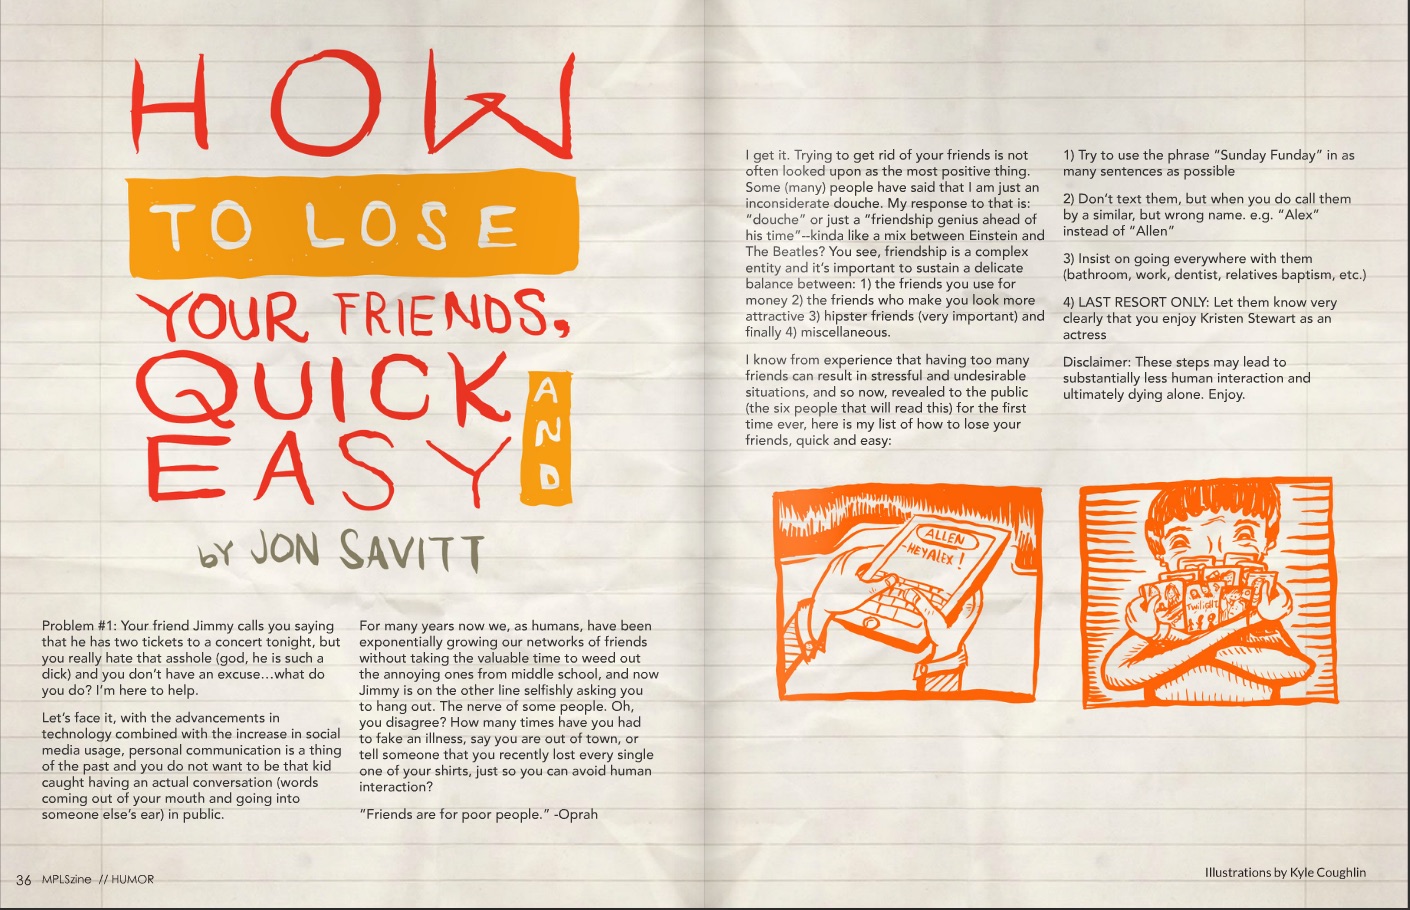 HOW
TO LOSE
YOUR FRIENDS,
QUICK
AND
EASY
bY JON SAVITT
Problem #1: Your friend Jimmy calls you saying
that he has two tickets to a concert tonight, but
you really hate that asshole (god, he is such a
dick) and you don’t have an excuse…what do
you do? I’m here to help.
Let’s face it, with the advancements in
technology combined with the increase in social
media usage, personal communication is a thing
of the past and you do not want to be that kid
caught having an actual conversation (words
coming out of your mouth and going into
someone else’s ear) in public.
For many years now we, as humans, have been
exponentially growing our networks of friends
without taking the valuable time to weed out
the annoying ones from middle school, and now
Jimmy is on the other line selfishly asking you
to hang out. The nerve of some people. Oh,
you disagree? How many times have you had
to fake an illness, say you are out of town, or
tell someone that you recently lost every single
one of your shirts, just so you can avoid human
interaction?
“Friends are for poor people.” -Oprah
36 MPLSzine // HUMOR
I get it. Trying to get rid of your friends is not
often looked upon as the most positive thing.
Some (many) people have said that I am just an
inconsiderate douche. My response to that is:
“douche” or just a “friendship genius ahead of
his time”--kinda like a mix between Einstein and
The Beatles? You see, friendship is a complex
entity and it’s important to sustain a delicate
balance between: 1) the friends you use for
money 2) the friends who make you look more
attractive 3) hipster friends (very important) and
finally 4) miscellaneous.
I know from experience that having too many
friends can result in stressful and undesirable
situations, and so now, revealed to the public
(the six people that will read this) for the first
time ever, here is my list of how to lose your
friends, quick and easy:
1) Try to use the phrase “Sunday Funday” in as
many sentences as possible
2) Don’t text them, but when you do call them
by a similar, but wrong name. e.g. “Alex”
instead of “Allen”
3) Insist on going everywhere with them
(bathroom, work, dentist, relatives baptism, etc.)
4) LAST RESORT ONLY: Let them know very
clearly that you enjoy Kristen Stewart as an
actress
Disclaimer: These steps may lead to
substantially less human interaction and
ultimately dying alone. Enjoy.
ALLEN
-HEY ALEX!
Twilight
Illustrations by Kyle Coughlin